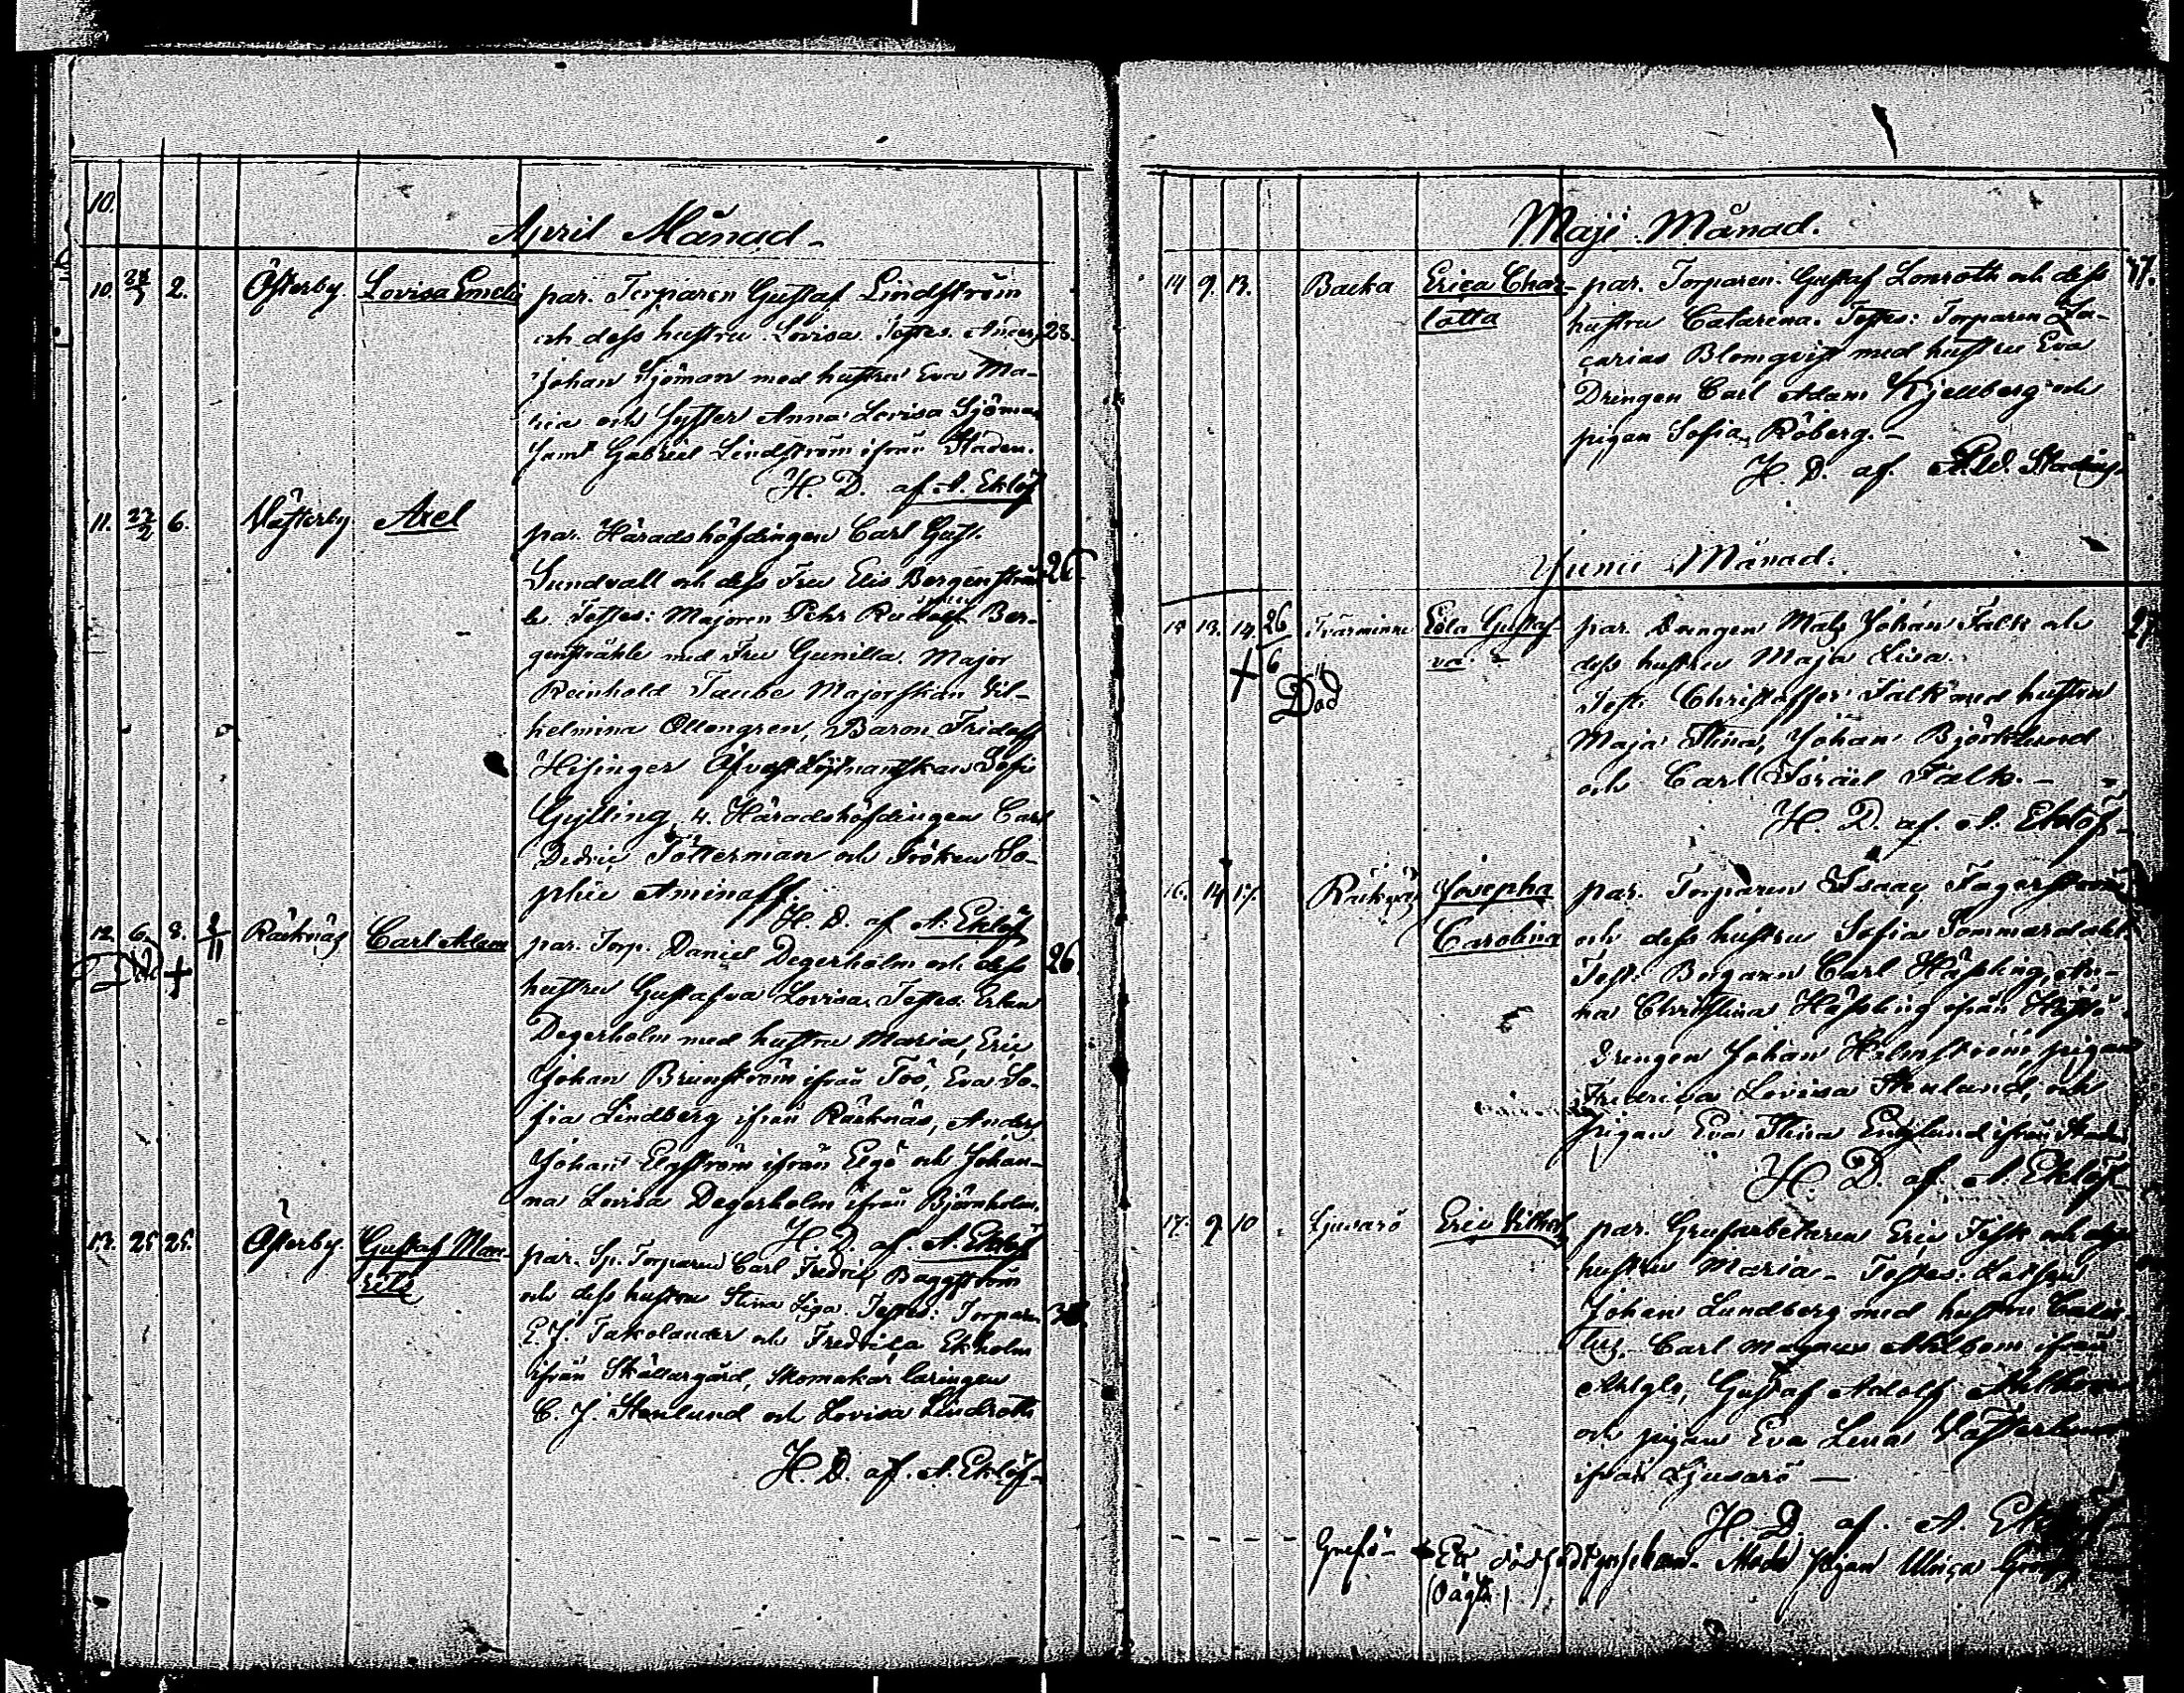 10.
April Månad
10. 28/3 2. Österby Lovisa Emeli par. Torparen Gustaf Lindström
och dess hustru Lovisa Testes. Anders 28.
Johan Sjöman med hustru Eva Ma-
ria och Syster Anna Lovisa Sjöman
samt Gabriel Lindström ifrån Staden.
H. D. af A. Eklöf
11. 27/2 6. Västerby Axel par. Häradshöfdingen Carl Gust.
Sundvall och dess Fru Elis Bergenstråh- 26
le Testes: Majoren Pehr Rudolf Ber-
genstråhle med Fru Gunilla. Major
Reinhold Taube Majorskan Vil-
helmina Ollongren, Baron Fridolf
Hisinger Öfverstlöjtnantskan Sofie
Gylling, H. Häradshöfdingen Carl
Dedric Tötterman och Fröken So-
phie Aminoff.
H. D. af A. Eklöf
12. 6. 8. 8/11 Räcknäs Carl Adam par. Torp. Daniel Degerholm och dess 26.
Död +
hustru Gustafva Lovisa. Testes: Erken
Degerholm med hustru Maria, Eric
Johan Brunström ifrån Toö, Eva So-
fia Lindberg ifrån Räcknäs, Anders
Johan Elgström ifrån Elgö och Johan-
na Lovisa Degerholm ifrån Björnholm.
H. D. af A. Eklöf
13. 25 25. Österby. Gustaf Mau- par. Sp. Torparen Carl Fredric Baggström
ritz och dess hustru Stina Lisa. Testes: Torparen
E. J. Takolander och Fredrica Ekholm
ifrån Skällargård, Skomakar läringen
C. J. Stenlund och Lovisa Lindroth
H. D. af. A. Eklöf
Maji Månad.
14 9. 13. Backa Erica Char- par. Torparen Gustaf Lönroth och dess 37.
lotta hustru Catarina. Testes: Torparen Za-
carias Blomqvist med hustru Eva
Drengen Carl Adam Kjellberg och
pigan Sofia Röberg.
H. D. af. Stadius.
Junii Månad.
15 13. 14. 26/6 Tvärminne Eola Gustaf- par. Drengen Mats Johan Falk och 27
va + Död dess hustru Maja Lisa.
Test: Christoffer Falk med hustru
Maja Stina, Johan Björklund
och Carl Israel Falk.
H. D. af. A. Eklöf
16. 14 17. Räcknäs Josepha par. Torparen Isaac Fagerström
Carolina och dess hustru Sofia Sommardahl
Test: Borgaren Carl Häsling, An-
na Christina Häsling ifrån Hästö
Drengen Johan Holmström, pigan
Fredrica Lovisa Stenlund, och
pigan Eva Stina Englund ifrån Staden
H. D. af. A. Eklöf
17. 9 10 Ljusarö Eric Vilhelm par. Grufarbetaren Eric Fisk och dess
hustru Maria. Testes:
Johan Lundberg med hustru
Carl Magnus Ahlbom ifrån
Gustaf Adolf Ahlbom
och pigan Eva Lena
ifrån Ljusarö
H. D. af. A. Eklöf
Grefö Ett dödfödt gossebarn. Moder Pigan Ulrica
(Oägta)